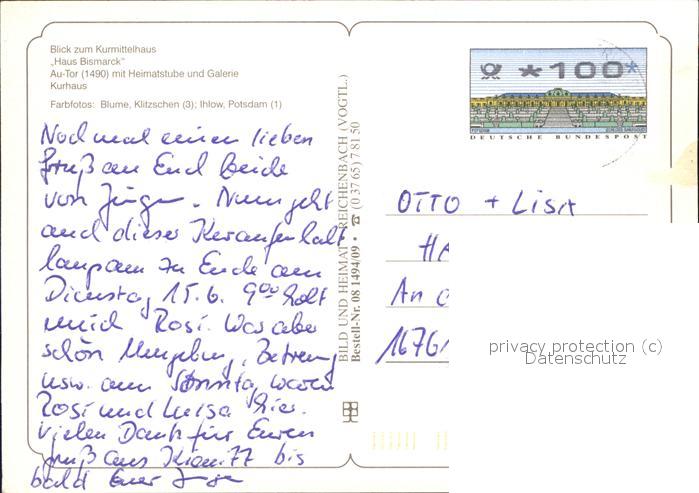 Blick zum Kurmittelhaus
„Haus Bismarck"
Au-Tor (1490) mit Heimatstube und Galerie
Kurhaus
Farbfotos: Blume, Klitzschen (3); Ihlow, Potsdam (1)
Noch mal einen lieben
Gruß an Euch Beide
von Jürgen. Nun geht
auch dieser Kuraufenthalt
langsam zu Ende am
Dienstag 15.6. 9⁰⁰ holt
mich Rosi. War aber
schön Umgebung, Betreuung
usw. am Sonntag waren
Rosi und Luisa hier.
Vielen Dank für Euren
Gruß aus bis
bald Euer Jürgen
BILD UND HEIMAT REICHENBACH (VOGTL.)
Bestell-Nr. 08 1494/09 • ☎ (0 37 65) 7 81 50
*100*
POTSDAM SCHLOSS SANSSOUCI
DEUTSCHE BUNDESPOST
OTTO + LISA
HA
An d
16761
privacy protection (c)
Datenschutz